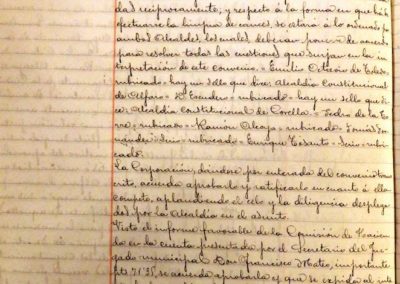 dad recíprocamente, y respecto á la forma en que ha de
efectuarse la limpia de cauces, se estará á lo ordenado por
ambos Alcaldes, los cuales deberán ponerse de acuerdo
para resolver todas las cuestiones que surjan en la in
terpretación de este convenio = Emilio Octavio de Toledo
rubricado = hay un sello que dice, Alcaldía Constitucional
de Alfaro = = rubricado = hay un sello que di
ce, Alcaldía Constitucional de Corella = Pedro de la
= rubricado = Ramon = rubricado =
= rubricado = Enrique = = rubri
cado.
La Corporación, dándose por enterada del convenio trans
crito, acuerda aprobarlo y ratificarlo en cuanto á ella
compete, aplaudiendo el celo y la diligencia desplega
dos por la Alcaldía en el asunto.
Visto el informe favorable de la Comisión de Hacien
da en la cuenta presentada por el Secretario del Juz
gado municipal Don Francisco Mateo, importante
pts 71'25, se acuerda aprobarla y que se expida al inte